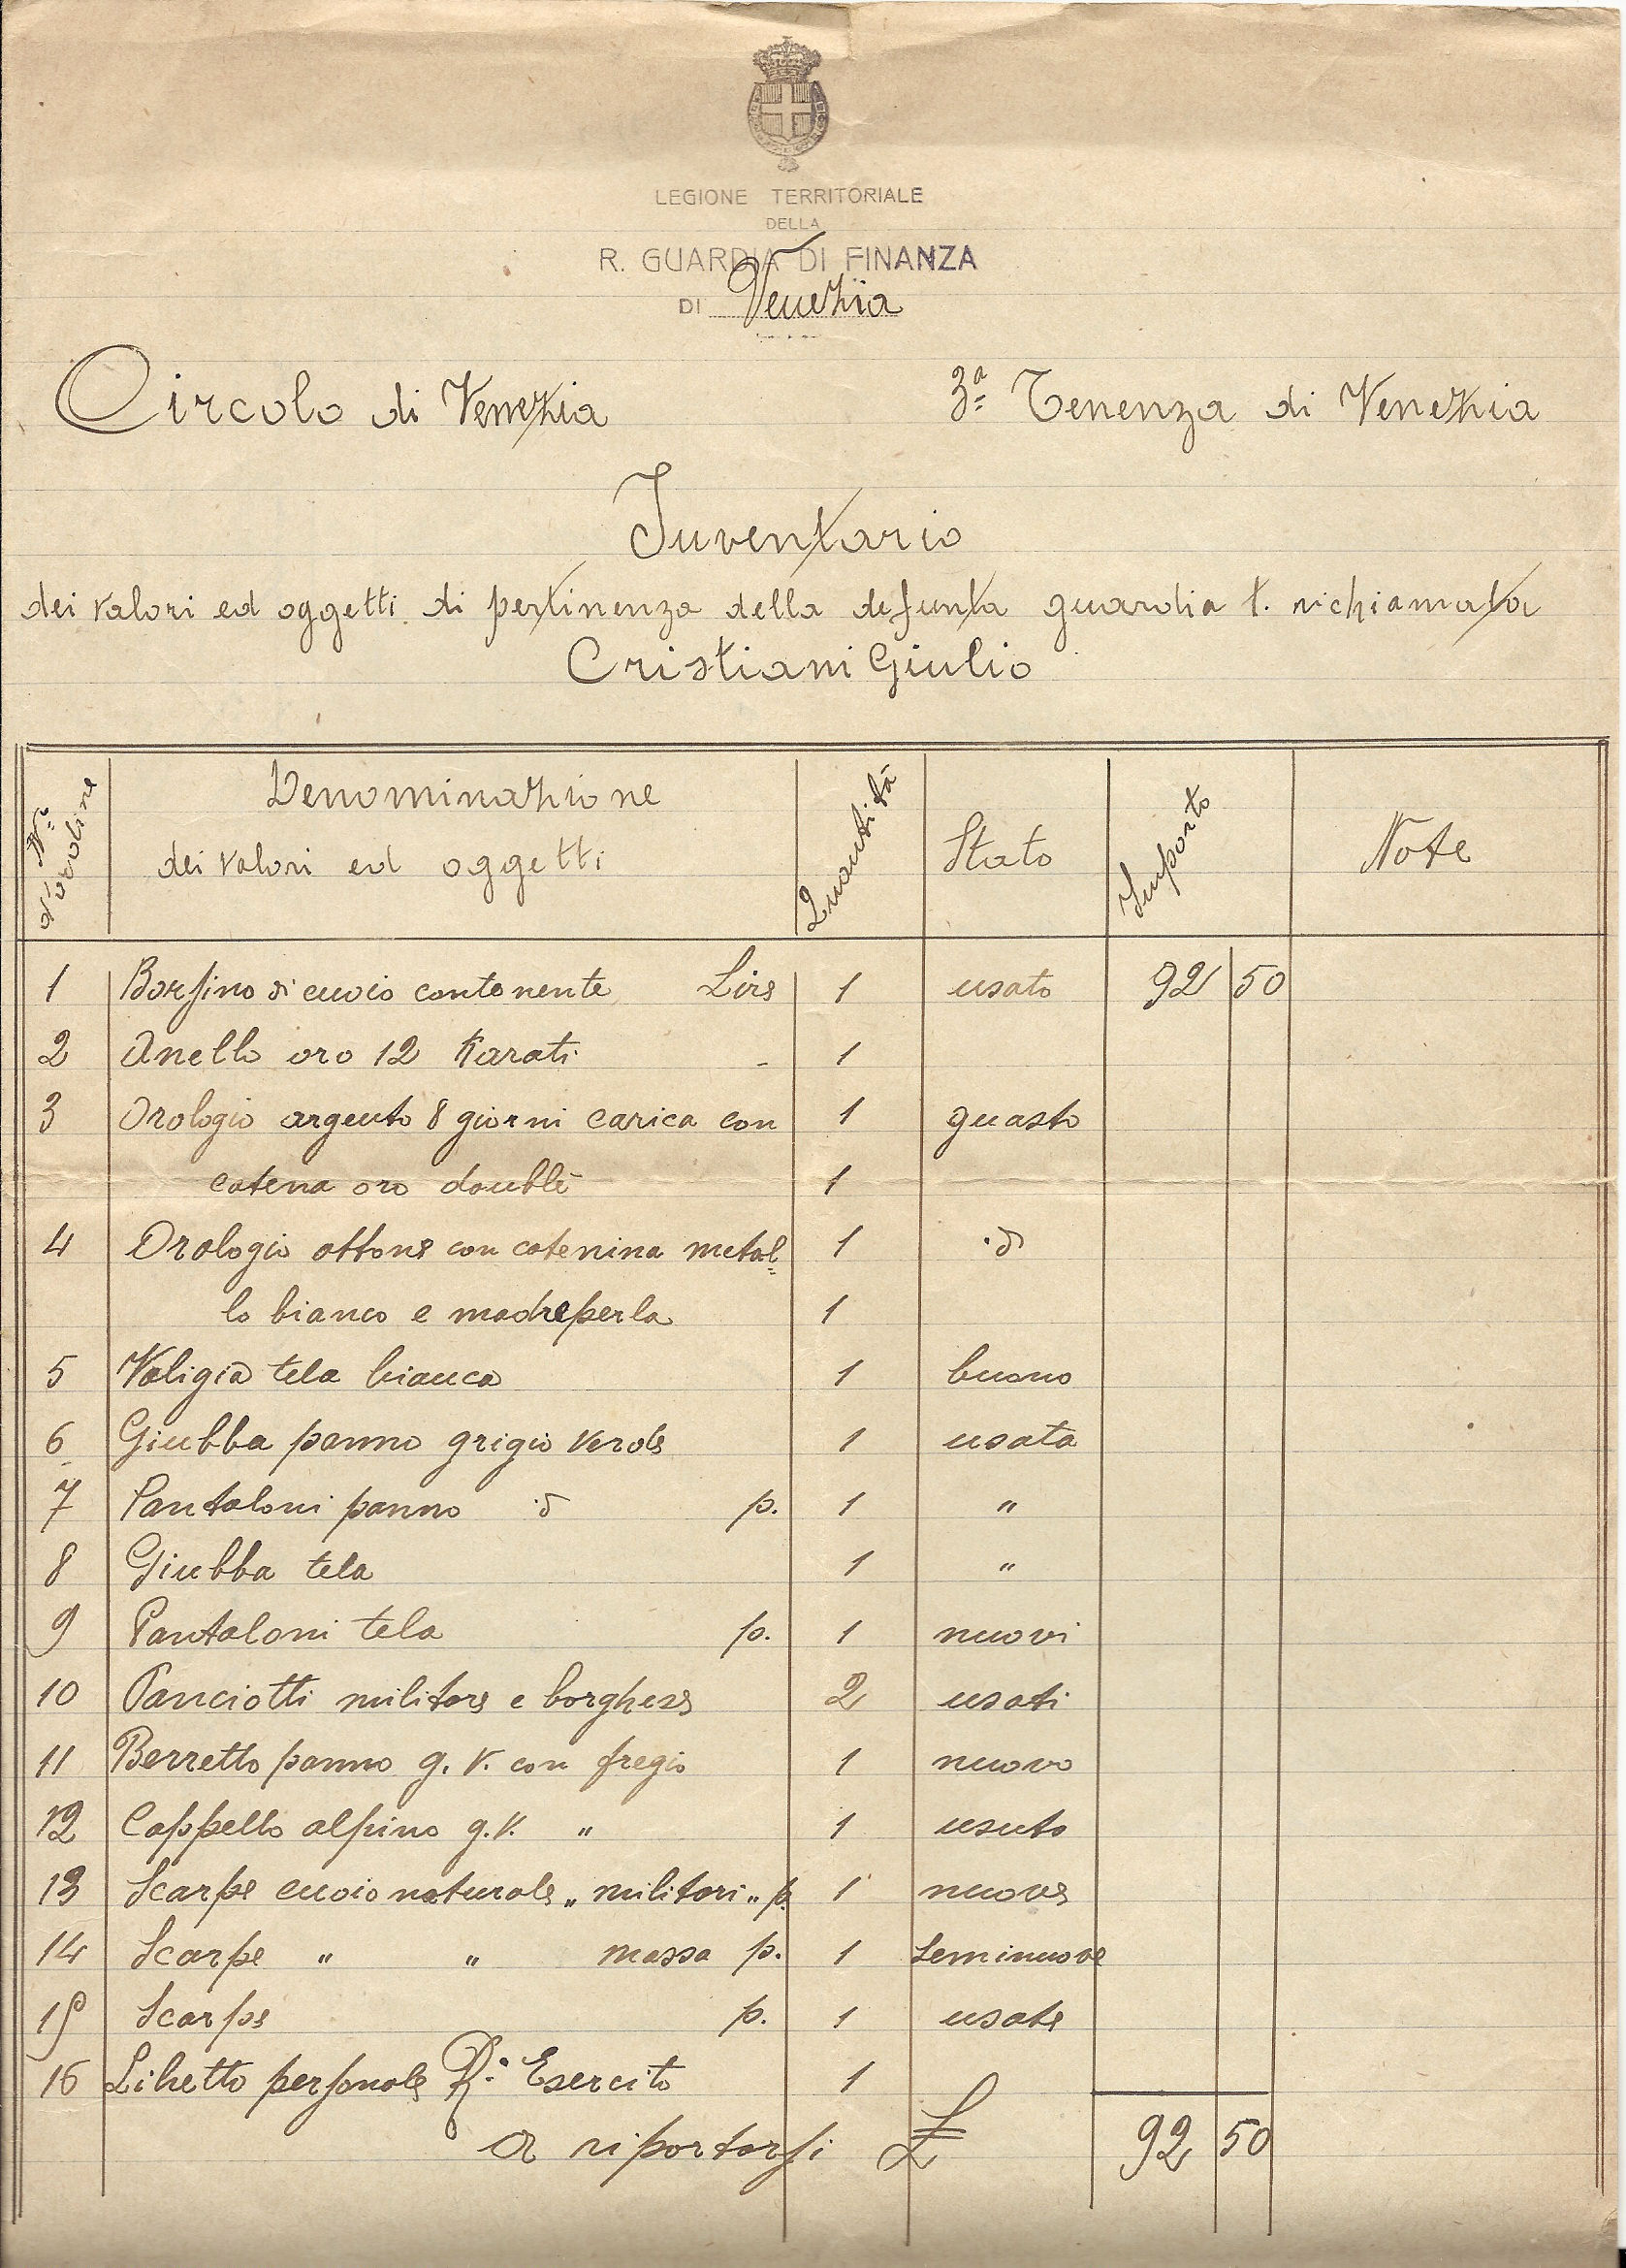 LEGIONE TERRITORIALE
DELLA
R. GUARDIA DI FINANZA
DI Venezia
Circolo di Venezia 3ª Tenenza di Venezia
Inventario
dei valori ed oggetti di pertinenza della defunta guardia t. richiamata
Cristiani Giulio
N.° d'ordine Denominazione dei valori ed oggetti Quantità Stato Importo Note
1 Borsino di cuoio contenente Lire 1 usato 92 50
2 Anello oro 12 Karati - 1
3 Orologio argento 8 giorni carica con 1 guasto
catena oro doublè 1
4 Orologio ottone con catenina metal= 1 id
lo bianco e madreperla 1
5 Valigia tela bianca 1 buono
6 Giubba panno grigio verde 1 usata
7 Pantaloni panno id p. 1 "
8 Giubba tela 1 "
9 Pantaloni tela p. 1 nuovi
10 Panciotti militare e borghese 2 usati
11 Berretto panno g. V. con fregio 1 nuovo
12 Cappello alpino g.V. " 1 usato
13 Scarpe cuoio naturale "militari" p. 1 nuove
14 Scarpe " " massa p. 1 seminuove
15 Scarpe p. 1 usate
16 Libretto personale R.° Esercito 1
a riportarsi £ 92 50